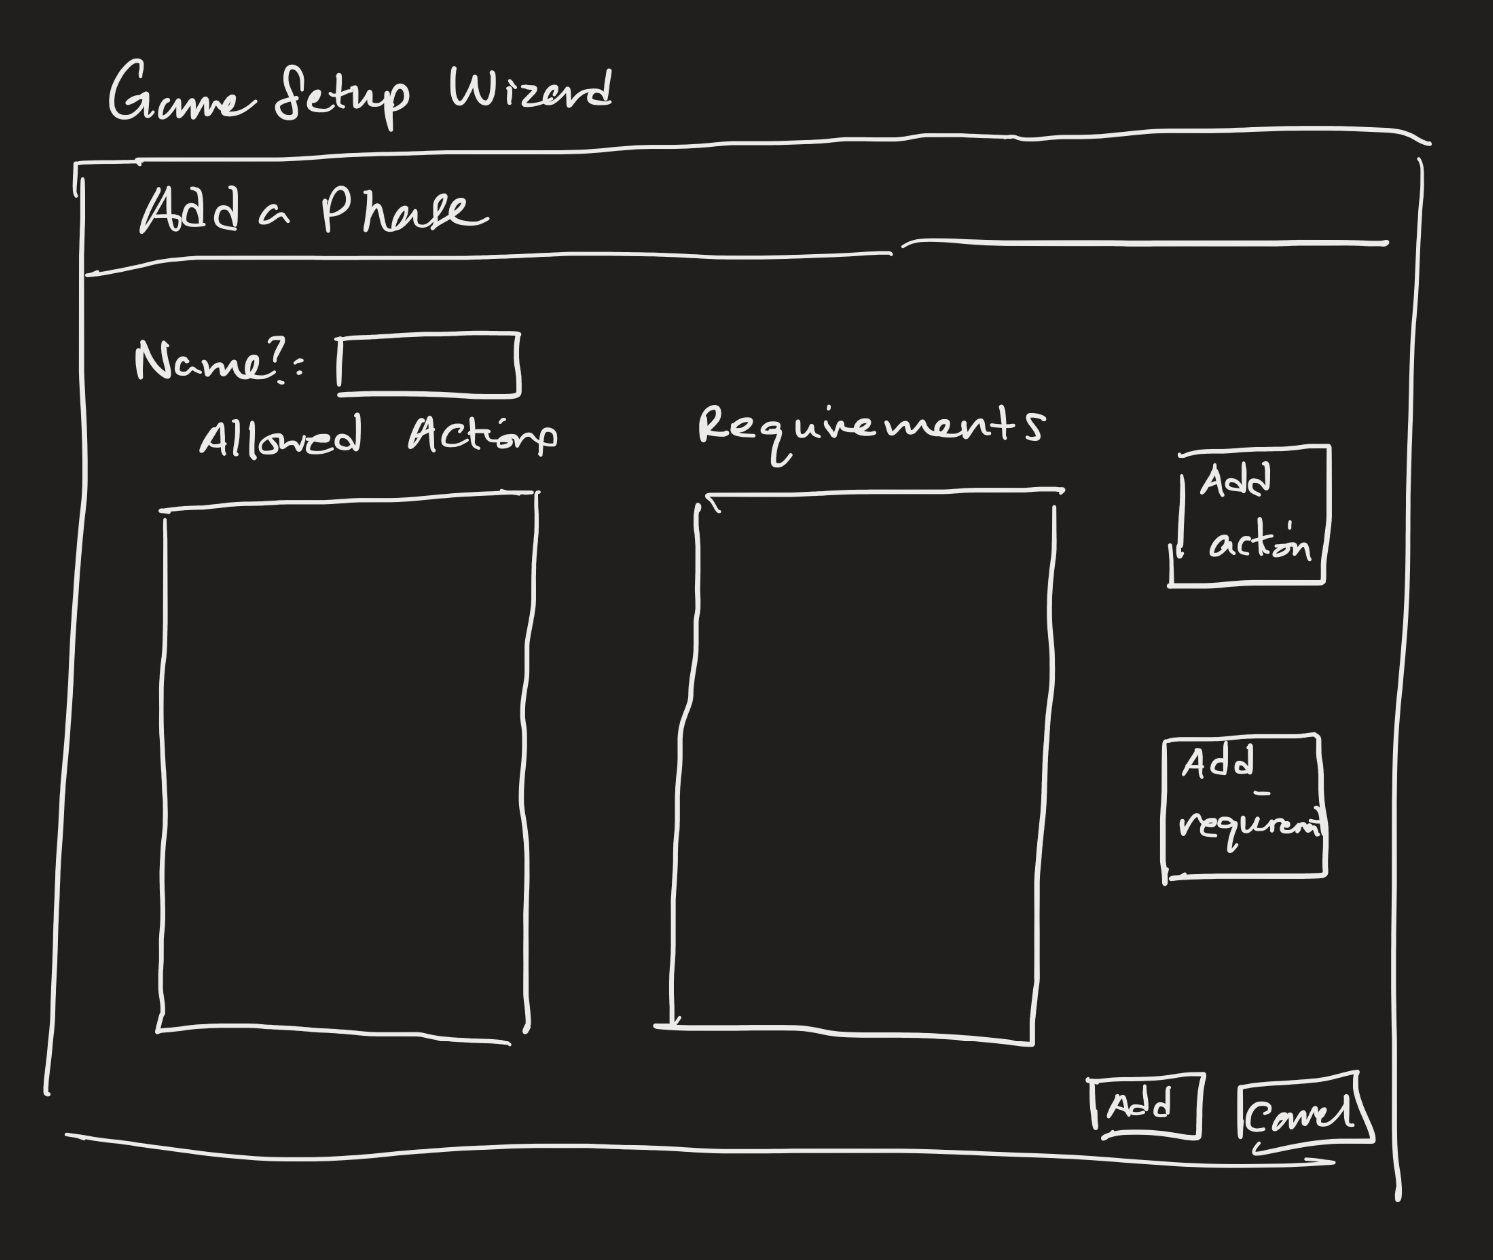 Game Setup Wizard
Add a Phase
Name?:
Allowed Actions
Requirements
Add
action
Add
requirement
Add
Cancel